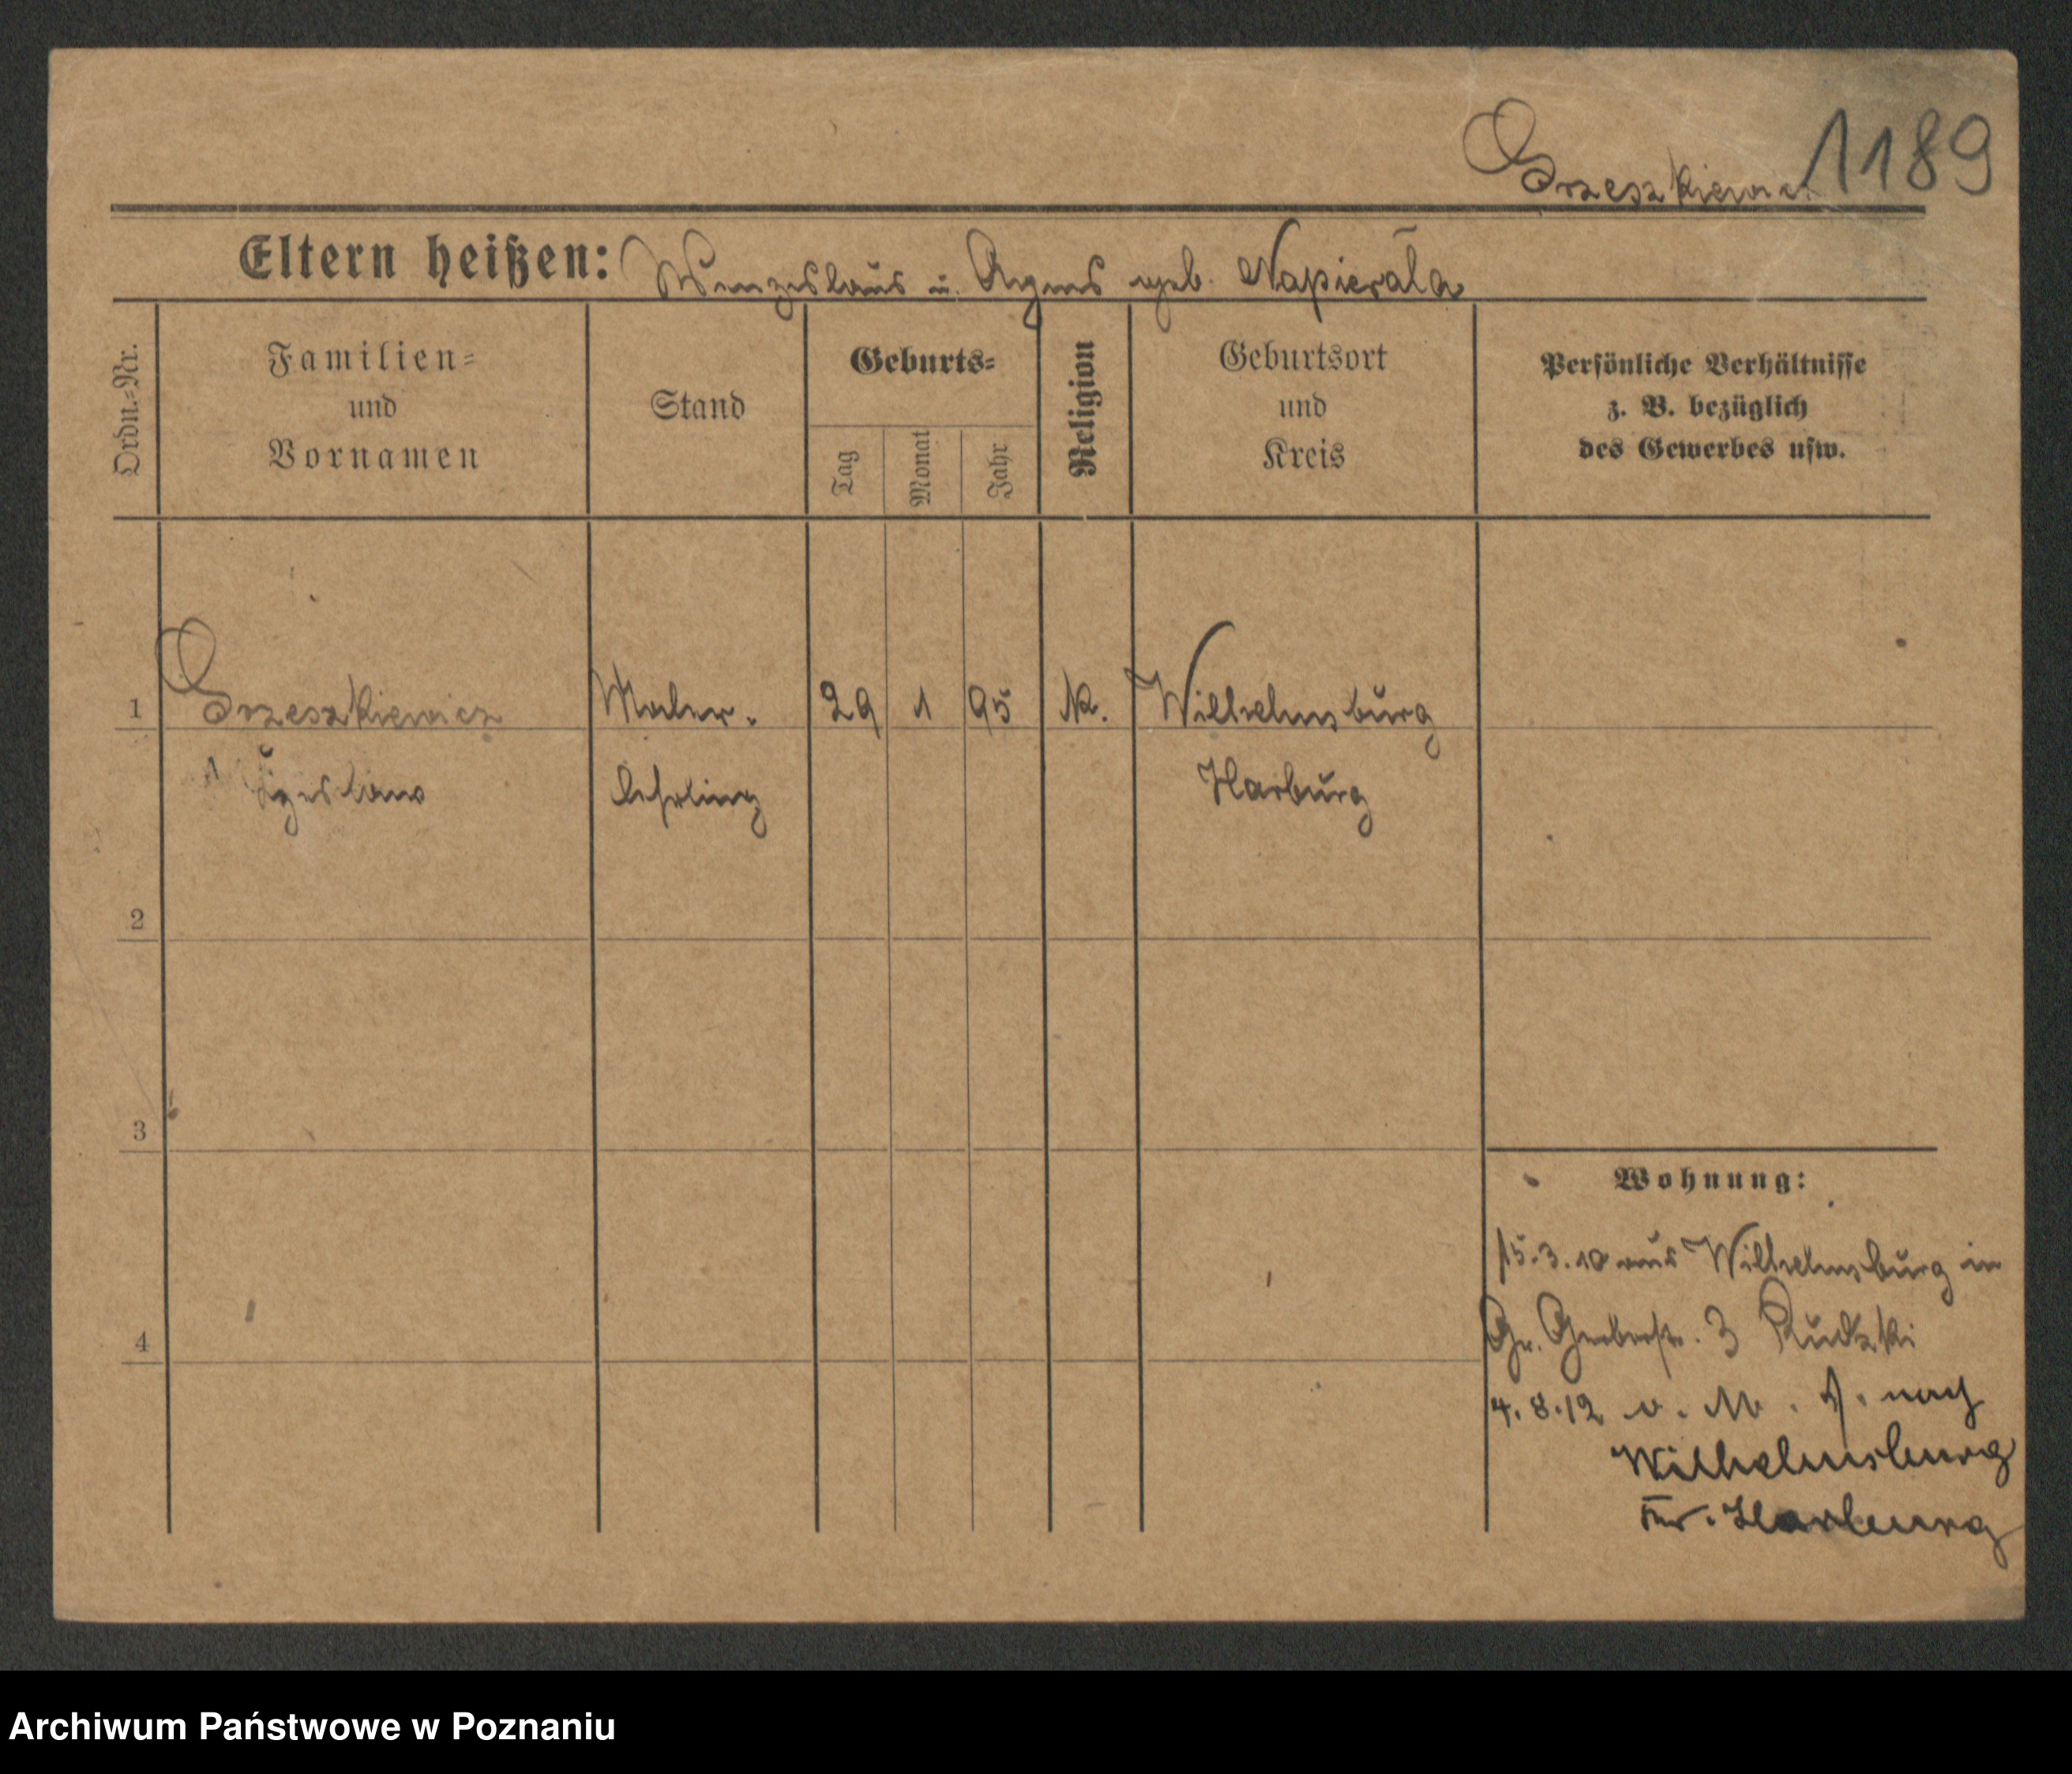 Grzeszkiewicz 1189
Eltern heißen: Wenzeslaus u. Agnes geb. Napierala
Ordn.-Nr.
Familien-
und
Vornamen
Stand
Geburts-
Tag
Monat
Jahr
Religion
Geburtsort
und
Kreis
Persönliche Verhältnisse
z. B. bezüglich
des Gewerbes usw.
1 Grzeszkiewicz Maler- 29 1 95 K. Wilhelmsburg
lehrling Harburg
2
3
4
Wohnung:
15.3.10 aus Wilhelmsburg in
Gr. Gerberstr. 3 Rudzki
4.8.12 v. M. A. nach
Wilhelmsburg
Kr. Harburg
Archiwum Państwowe w Poznaniu